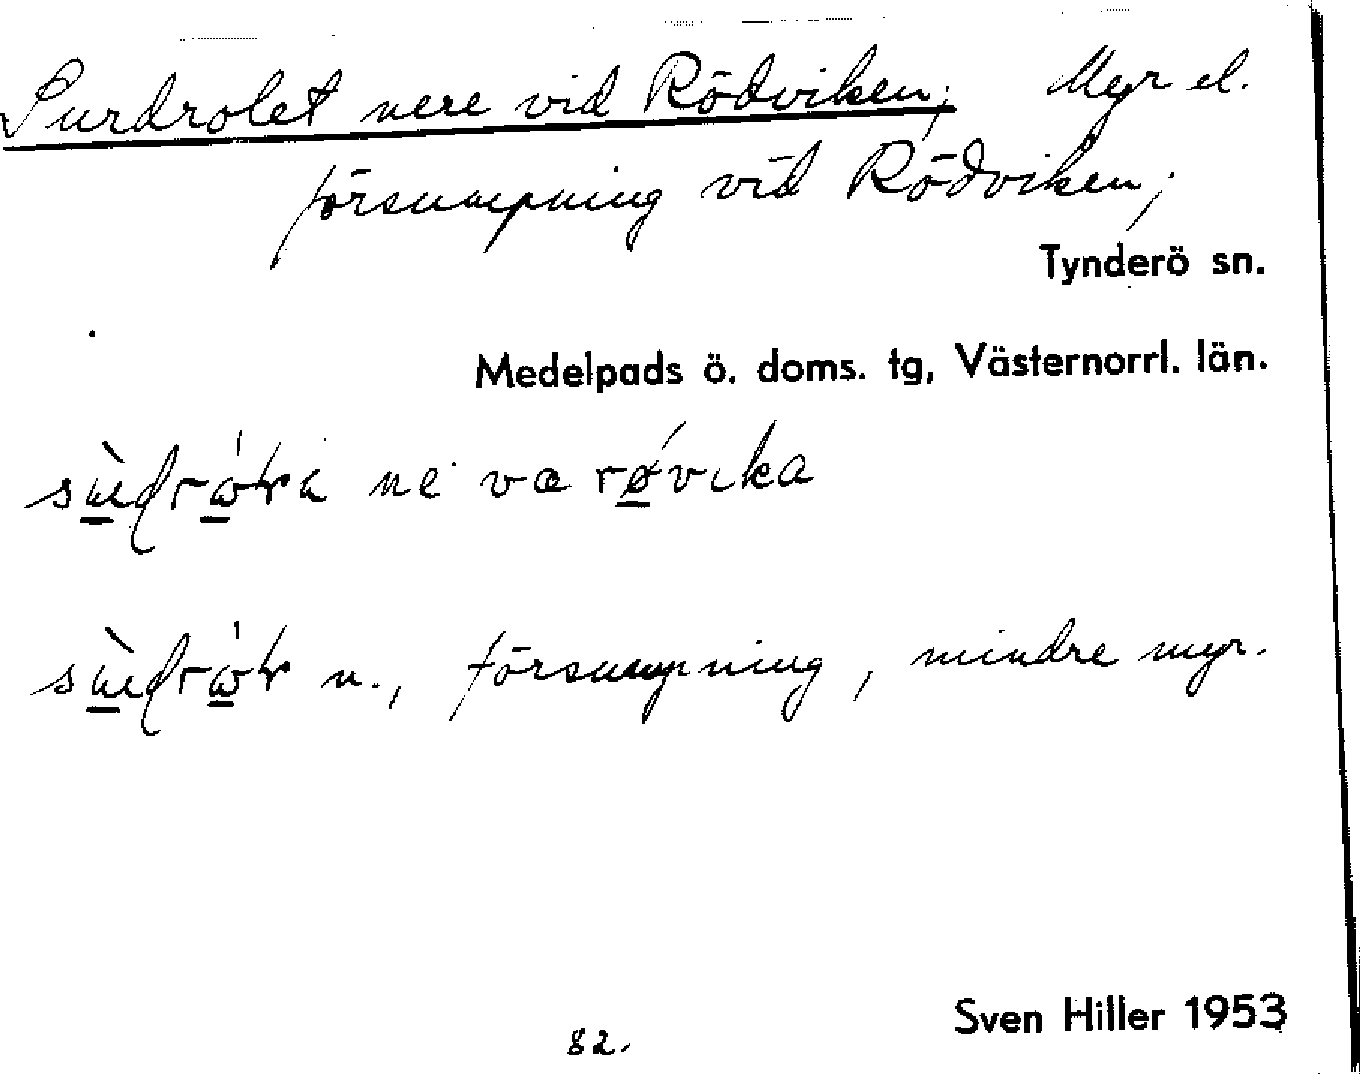 Surdrolet nere vid Rödviken; Myr el.
försumpning vid Rödviken;
Tynderö sn.
Medelpads ö. doms. tg, Västernorrl. län.
ne va
n., försumpning, mindre myr.
Sven Hiller 1953
82.